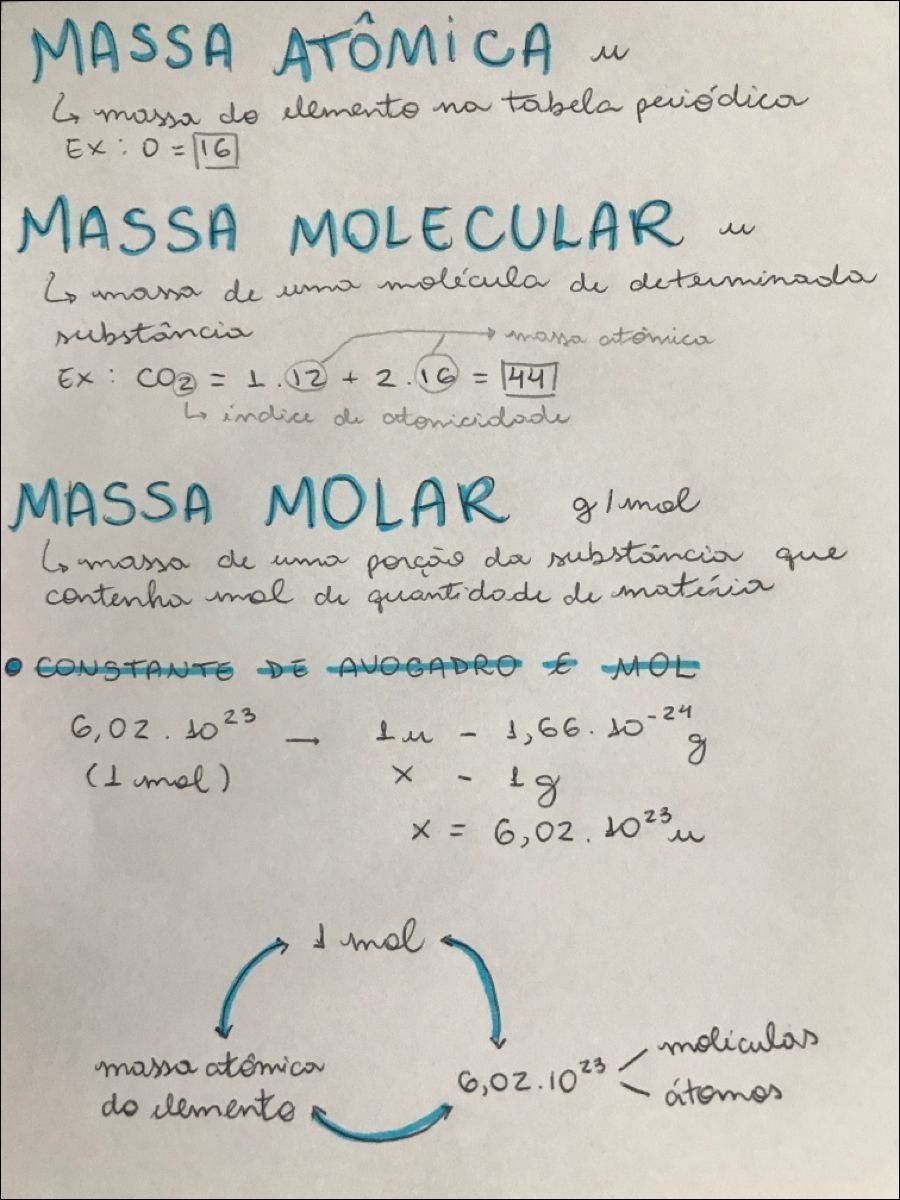 MASSA ATÔMICA u
↳ massa do elemento na tabela periódica
Ex: O = 16
MASSA MOLECULAR u
↳ massa de uma molécula de determinada
substância → massa atômica
Ex: CO₂ = 1.12 + 2.16 = 44
↳ índice de atomicidade
MASSA MOLAR g/mol
↳ massa de uma porção da substância que
contenha mol de quantidade de matéria
• CONSTANTE DE AVOGADRO E MOL
6,02.10²³ → 1u - 1,66.10⁻²⁴ g
(1 mol) x - 1g
x = 6,02.10²³ u
1 mol
massa atômica
do elemento
6,02.10²³
moléculas
átomos